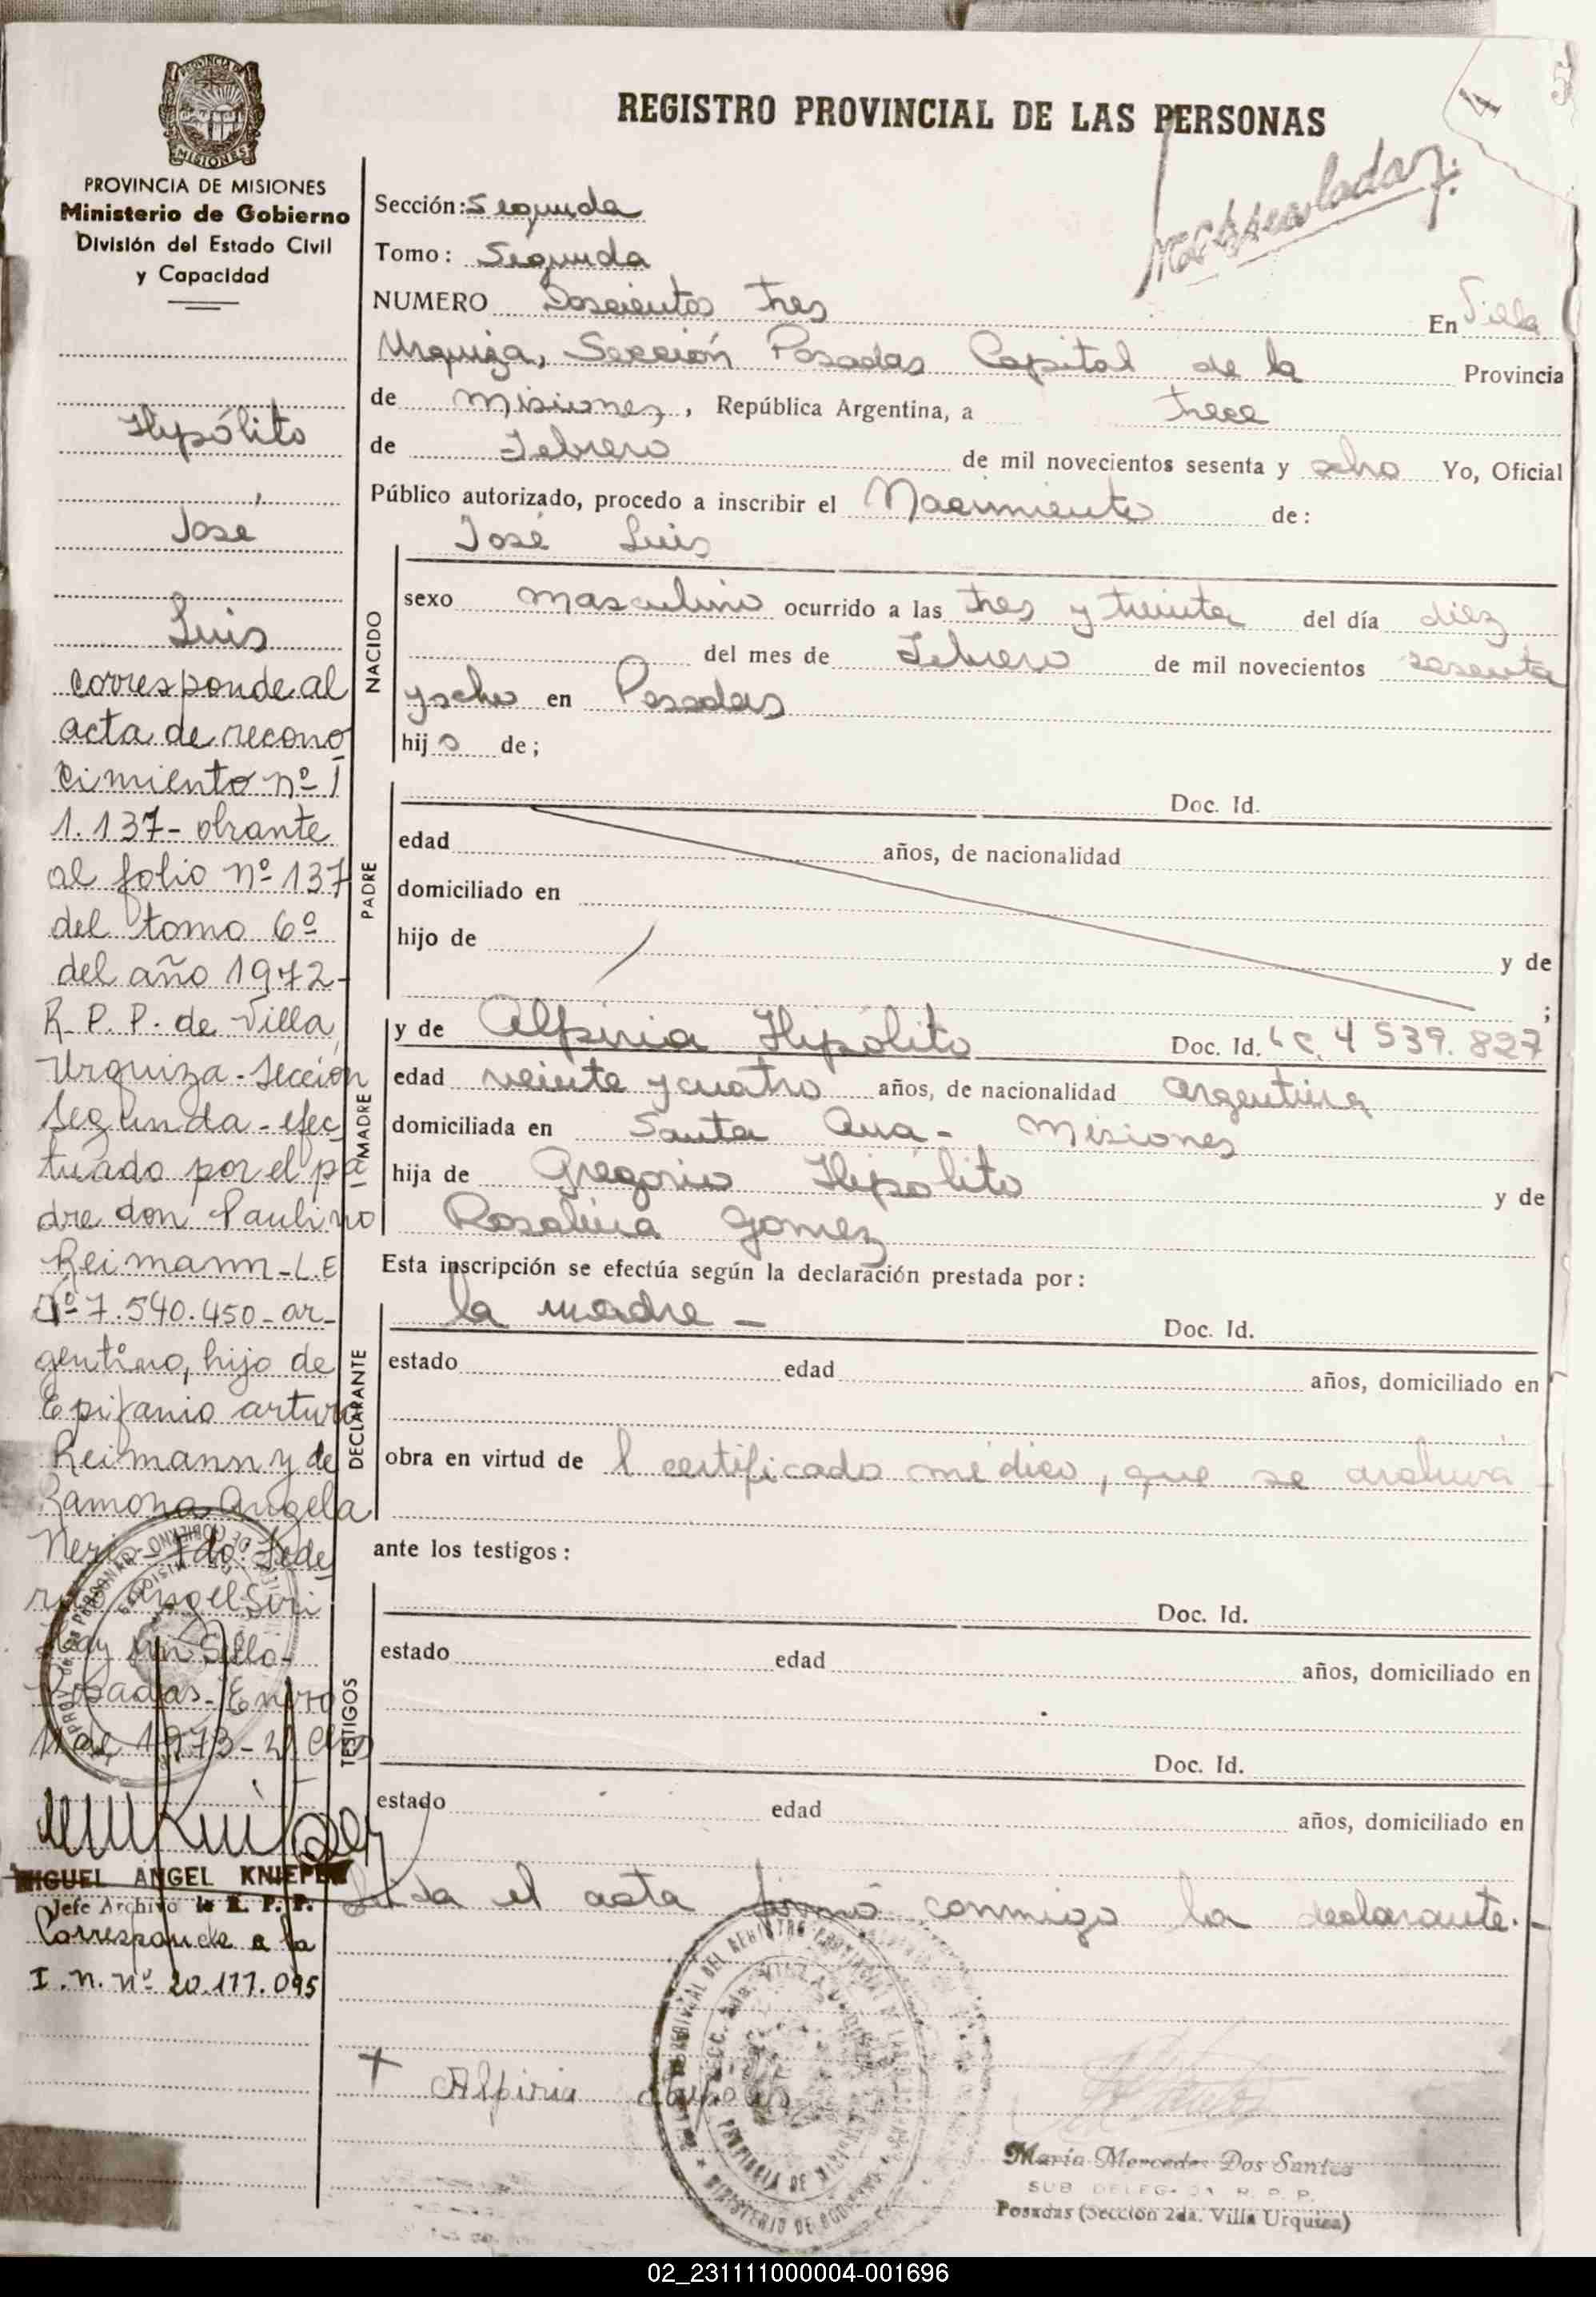 PROVINCIA DE MISIONES
MISIONES
PROVINCIA DE MISIONES
Ministerio de Gobierno
División del Estado Civil
y Capacidad
Hipólito
José
Luis
corresponde al
acta de recono
cimiento nº 1
1.137- obrante
al folio nº 137
del tomo 6º
del año 1972-
R. P. P. de Villa
Urquiza-Sección
Segunda-efec
tuado por el pa
dre don Paulino
Reimann-L.E
Nº 7.540.450-ar-
gentino, hijo de
Epifanio arturo
Reimann y de
Ramona Angela
Neri- Fdo: Fede
rico Angel Siri
Hay un Sello-
Posadas-Enero
de 1973-
MIGUEL ANGEL KNIEPER
Jefe Archivo R. P. P.
Corresponde a la
I. n. nº 20.177.095
REGISTRO PROVINCIAL DE LAS PERSONAS
4
Sección: Segunda
Tomo: Segunda
NUMERO Doscientos tres En Villa
Urquiza, Sección Posadas Capital de la Provincia
de misiones, República Argentina, a trece
de Febrero de mil novecientos sesenta y ocho Yo, Oficial
Público autorizado, procedo a inscribir el Nacimiento de:
José Luis
NACIDO
sexo masculino ocurrido a las tres y treinta del día diez
del mes de Febrero de mil novecientos sesenta
y ocho en Posadas
hijo de;
PADRE
Doc. Id.
edad años, de nacionalidad
domiciliado en
hijo de y de
;
MADRE
y de Alpiria Hipólito Doc. Id. L C. 4 539. 827
edad veinte y cuatro años, de nacionalidad argentina
domiciliada en Santa Ana - Misiones
hija de Gregorio Hipólito y de
Rosalina Gomez
Esta inscripción se efectúa según la declaración prestada por:
DECLARANTE
la madre - Doc. Id.
estado edad años, domiciliado en
obra en virtud de l certificado médico, que se archiva
ante los testigos:
TESTIGOS
Doc. Id.
estado edad años, domiciliado en
Doc. Id.
estado edad años, domiciliado en
Leída el acta firmó conmigo la declarante.-
Alpiria
María Mercedes Dos Santos
SUB DELEG. R. P. P.
Posadas (Sección 2da. Villa Urquiza)
02_231111000004-001696